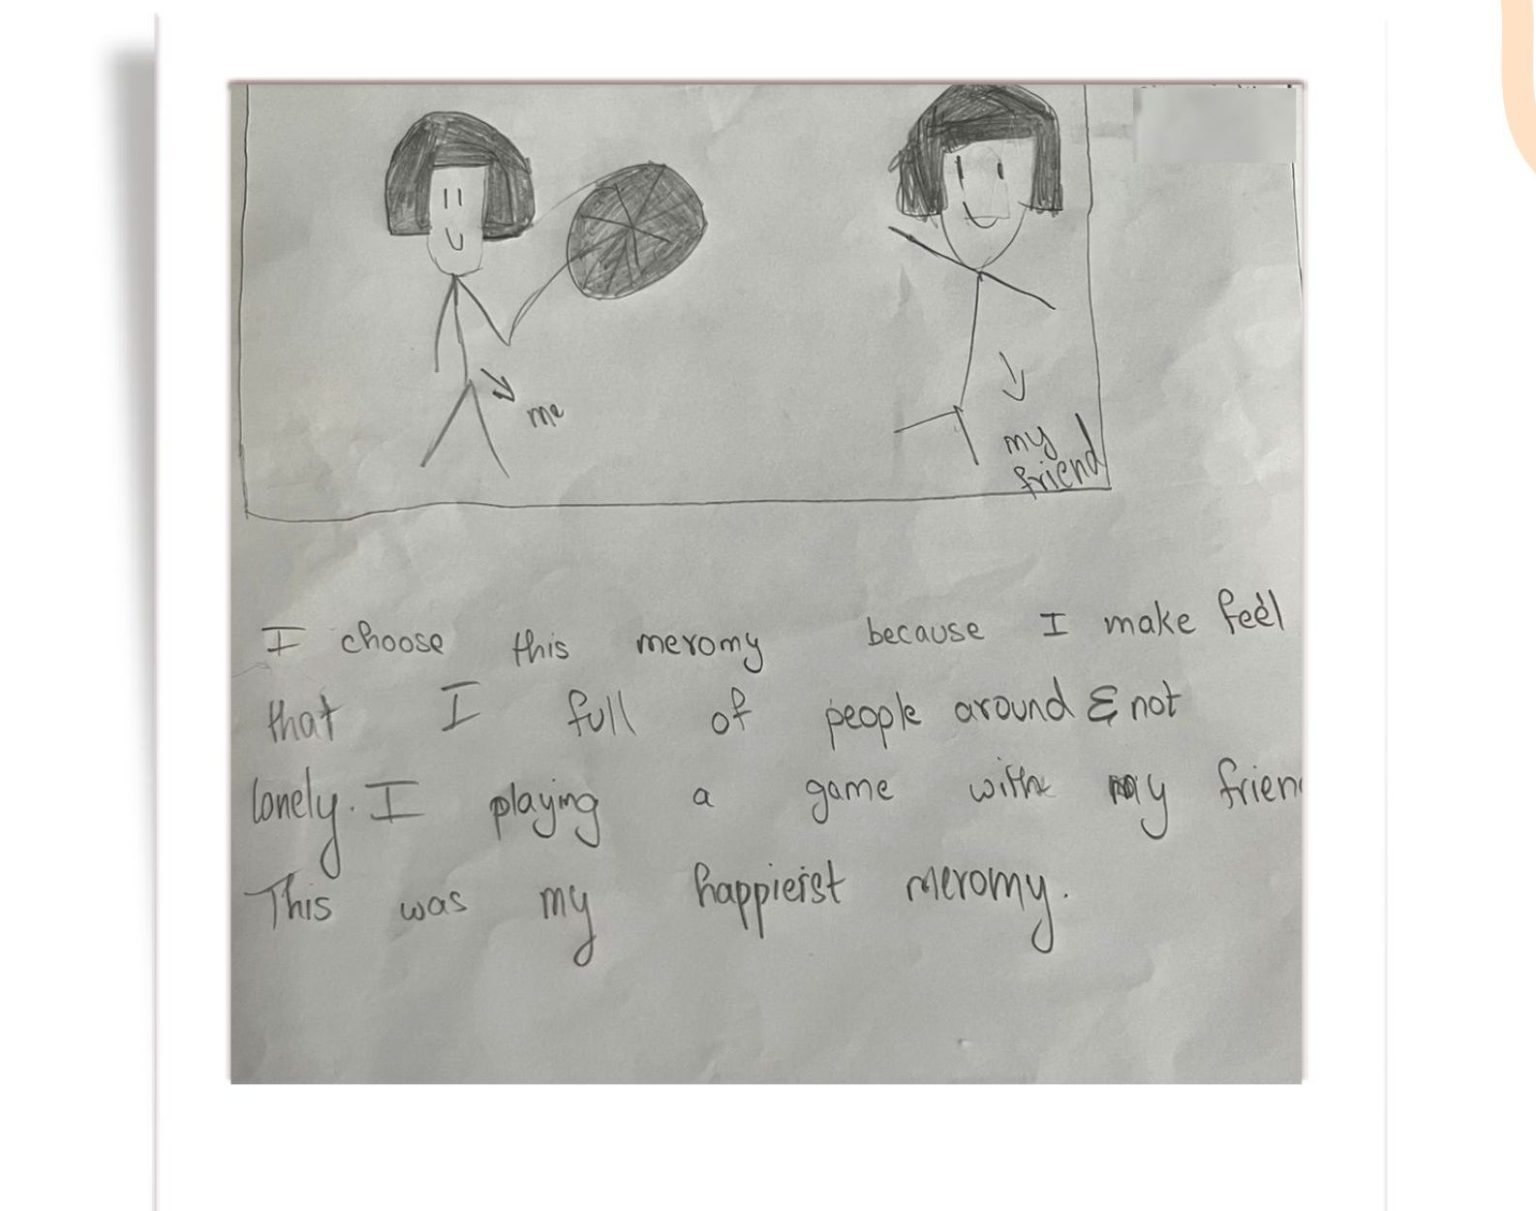 me
my
friend
I choose this meromy because I make feel
that I full of people around & not
lonely. I playing a game with my frien
This was my happierst meromy.